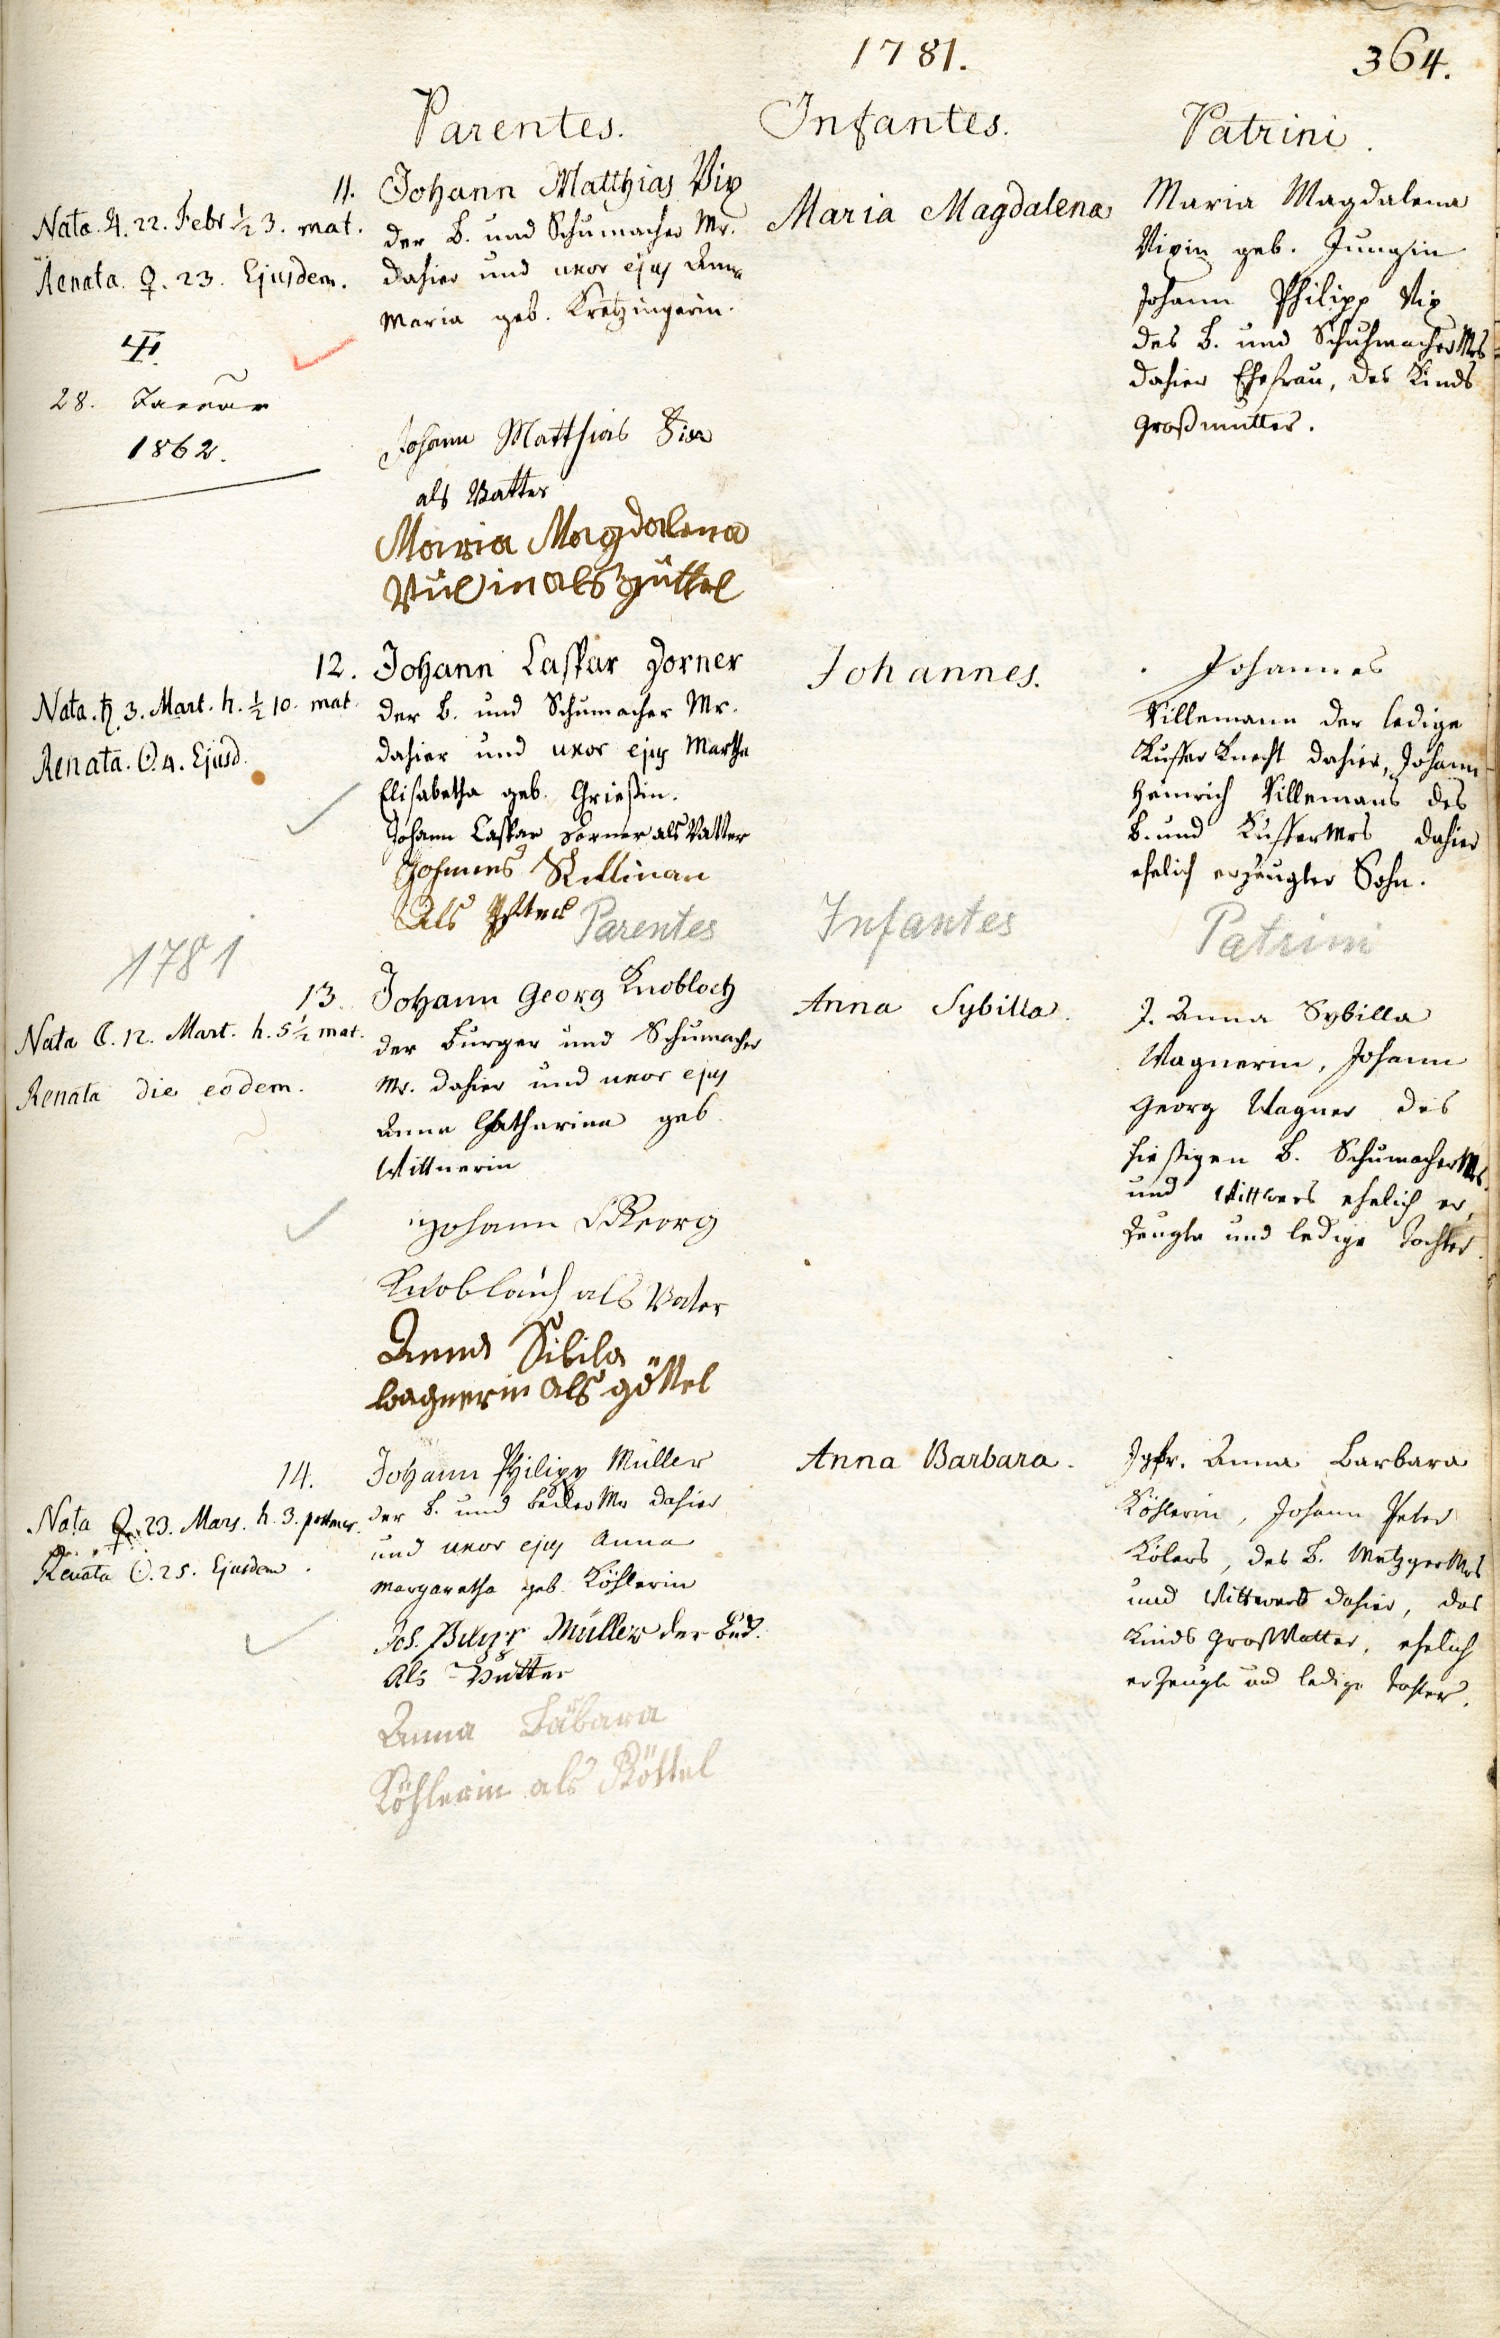 1781.
364.
Parentes.
Infantes.
Patrini.
11.
Nata. ♃. 22. Febr ½ 3. mat.
Renata. ♀. 23. Ejusdem.
28. Januar
1862.
Johann Matthias Vix
der B. und Schumacher Mr.
dahier und uxor ejus Anna
Maria geb. Kretzingerin.
Johann Matthias Vix
als Vatter
Maria Magdalena
Vixin als göttel
Maria Magdalena
Maria Magdalena
Vixin geb. Jungin
Johann Philipp Vix
des B. und Schuhmacher Mrs
dahier Ehefrau, des Kinds
Großmutter.
12.
Nata. ♄. 3. Mart. h. ½ 10. mat.
Renata. ☉. 4. Ejusd.
Johann Caspar Dorner
der B. und Schumacher Mr.
dahier und uxor ejus Martha
Elisabetha geb. Grießin.
Johann Caspar Dorner als Vatter
Johannes
als
Johannes.
Johannes
Killemann der ledige
Kuffer Knecht dahier, Johann
Heinrich Killemans des
B. und Kuffer Mrs dahier
ehelich erzeugter Sohn.
1781
Parentes
Infantes
Patrini
13.
Nata ☾. 12. Mart. h. 5½ mat.
Renata die eodem.
Johann Georg Knobloch
der Burger und Schumacher
Mr. dahier und uxor ejus
Anna Catharina geb.
Wittnerin
Johann Georg
Knoblauch als Vater
Anna Sibila
wagnerin als göttel
Anna Sybilla.
J. Anna Sybilla
Wagnerin, Johann
Georg Wagner des
hießigen B. Schumacher Mrs.
und Wittwers ehelich er,
zeugte und ledige Tochter.
14.
Nata ♀. 23. Mars. h. 3. pomer.
Renata ☉. 25. Ejusdem.
Johann Philipp Müller
der B. und Becker Mr dahier
und uxor ejus Anna
Margaretha geb. Köhlerin
Joh. Philipp Müller der
Als Vatter
Anna Babara
Köhlerin als Göttel
Anna Barbara.
Jgfr. Anna Barbara
Köhlerin, Johann Peter
Kölers, des B. Metzger Mrs
und Wittwers dahier, des
Kinds GroßVatter, ehelich
erzeugte und ledige Tochter.